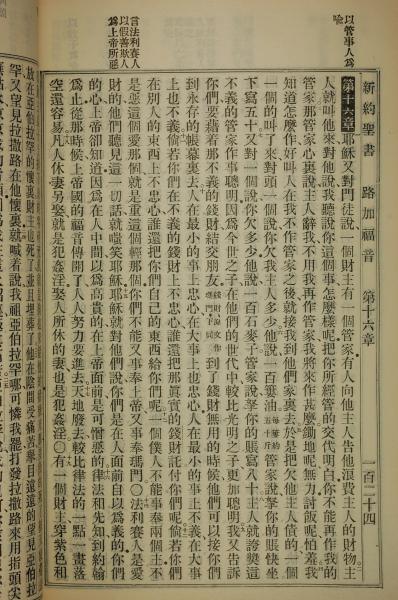 新約聖書 路加福音 第十六章 一百二十四
以管事人爲
喻
第十六章耶穌又對門徒說一個財主有一個管家有人向他主人告他浪費主人的財物主
人就叫他來對他說我聽說你這個事怎麼樣呢把你所經管的交代明白你不能再作我的
管家那管家心裏說主人辭我不用我再作管家我將來作甚麼鋤地呢無力討飯呢怕羞我
知道怎麼作好叫人在我不作管家之後就接我到他們家裏去於是把欠他主人債的一個
一個的叫了來對頭一個說你欠我主人多少他說一百簍油每簍約五十斤管家說拏你的賬快坐
下寫五十又對一個說你欠多少他說一百石麥子管家說拏你的賬寫八十主人就誇獎這
不義的管家作事聰明因爲今世之子在他們的世代中較比光明之子更加聰明我又告訴
你們要藉着那不義的錢財結交朋友錢財源文作瑪門下同到了錢財無用的時候他們可以接你們
到永存的帳幕裏去人在最小的事上忠心在大事上也忠心人在最小的事上不義在大事
上也不義倘若你們在不義的錢財上不忠心誰還把那眞實的錢財託付你們呢倘若你們
在別人的東西上不忠心誰還把你們自己的東西給你們呢一個僕人不能事奉兩個主不
言法利賽人
以假善欺人
爲上帝所惡
是惡這個愛那個就是重這個輕那個你們不能又事奉上帝又事奉瑪門○法利賽人是愛
財的他們聽見這一切話就嗤笑耶穌耶穌就對他們說你們是在人面前自以爲義的你們
的心上帝卻知道因爲在人中間以爲高貴的在上帝面前是可憎惡的律法和先知到約翰
爲止從那時候上帝國的福音傳開了人人努力要進去天地廢去較比律法的一點一畫落
空還容易凡人休妻另娶就是犯姦淫娶人所休的妻也是犯姦淫○有一個財主穿紫色和
放在亞伯拉罕的懷裏財主也死了並且埋葬了他在陰間受痛苦舉目遠遠的望見亞伯拉
罕又望見拉撒路在他懷裏就喊着說我祖亞伯拉罕哪可憐我罷打發拉撒路來用指頭尖